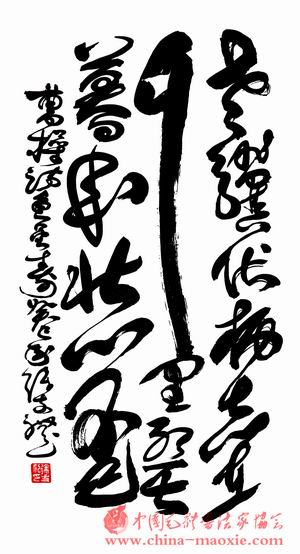 老驥伏櫪志在
千里烈士
暮年壯心不已
曹操詩
中国毛体书法家协会
www.china-maoxie.com